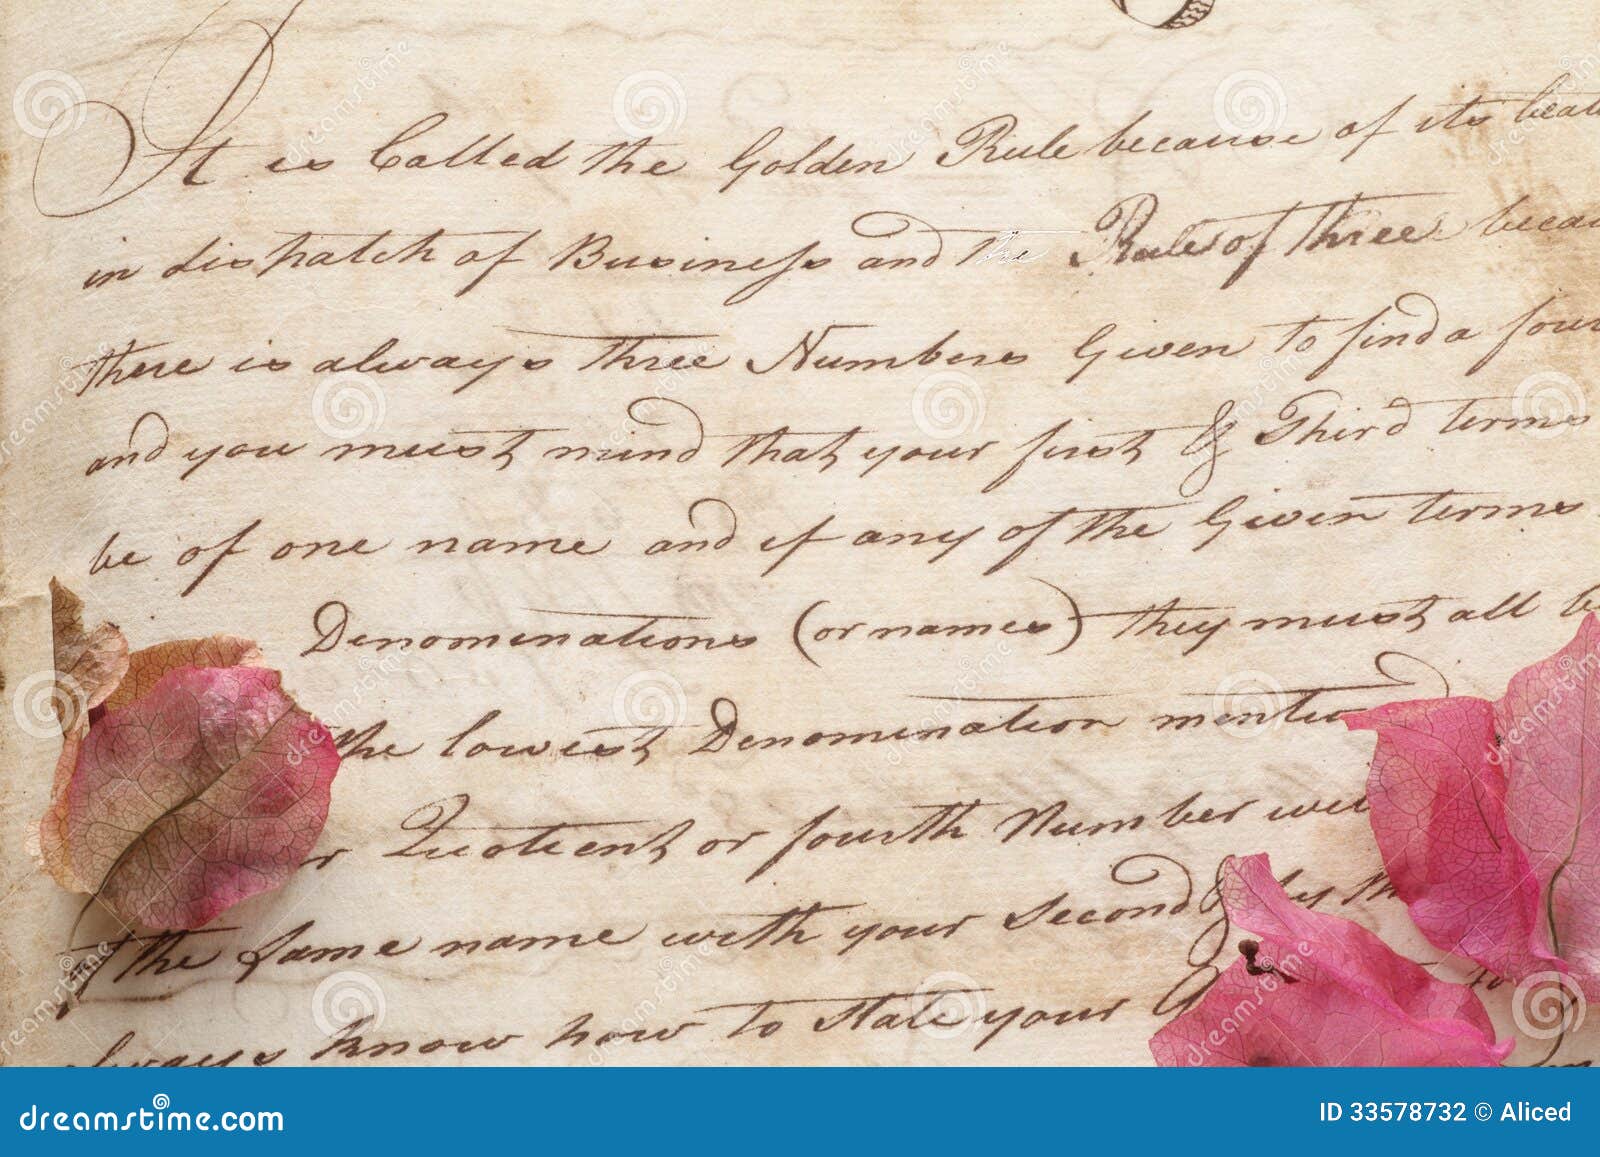 It is Called the Golden Rule because of its
in dispatch of Business and the Rule of three
there is always three Numbers Given to find a
and you must mind that your first & Third terms
be of one name and if any of the Given terms
Denominations (or names) they must all
the lowest Denomination
Quotient or fourth Number
of the same name with your second & by
always know how to state your
dreamstime.com
ID 33578732 © Aliced